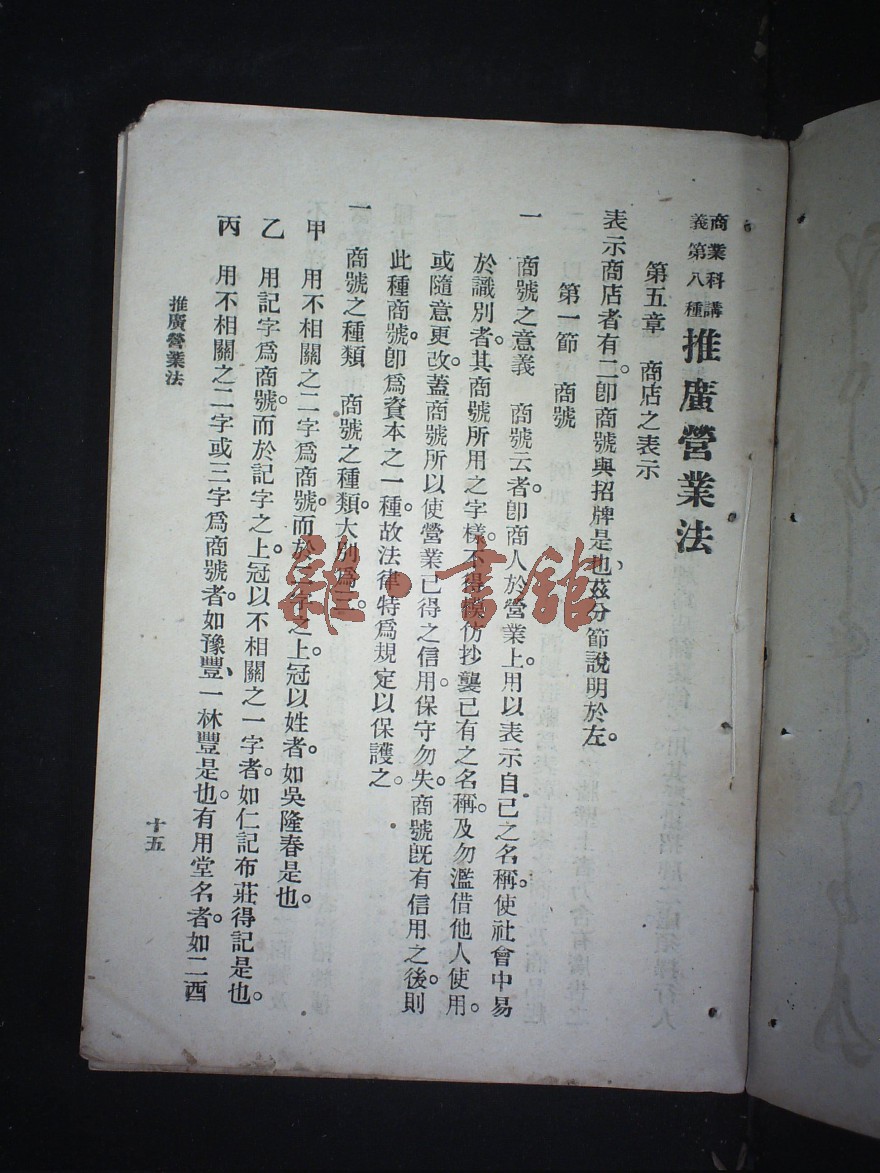 商業科講
義第八種
推廣營業法
第五章　商店之表示
表示商店者有二。卽商號與招牌是也、茲分節說明於左。
第一節　商號
一　商號之意義　商號云者。卽商人於營業上。用以表示自己之名稱。使社會中易
於識別者。其商號所用之字樣。不得模仿抄襲已有之名稱。及勿濫借他人使用。
或隨意更改。蓋商號所以使營業已得之信用。保守勿失。商號旣有信用之後。則
此種商號。卽爲資本之一種。故法律特爲規定以保護之。
一　商號之種類　商號之種類。大別爲三
甲　用不相關之二字爲商號。而於二字之上。冠以姓者。如吳隆春是也。
乙　用記字爲商號。而於記字之上。冠以不相關之一字者。如仁記布莊得記是也。
丙　用不相關之二字或三字爲商號者。如豫豐、一林豐是也。有用堂名者。如二酉
推廣營業法
十五
雜·書館